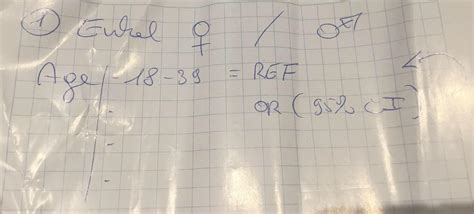 ① Enkel ♀ / ♂
Age - 18-39 = REF
OR (95% CI)
-
-